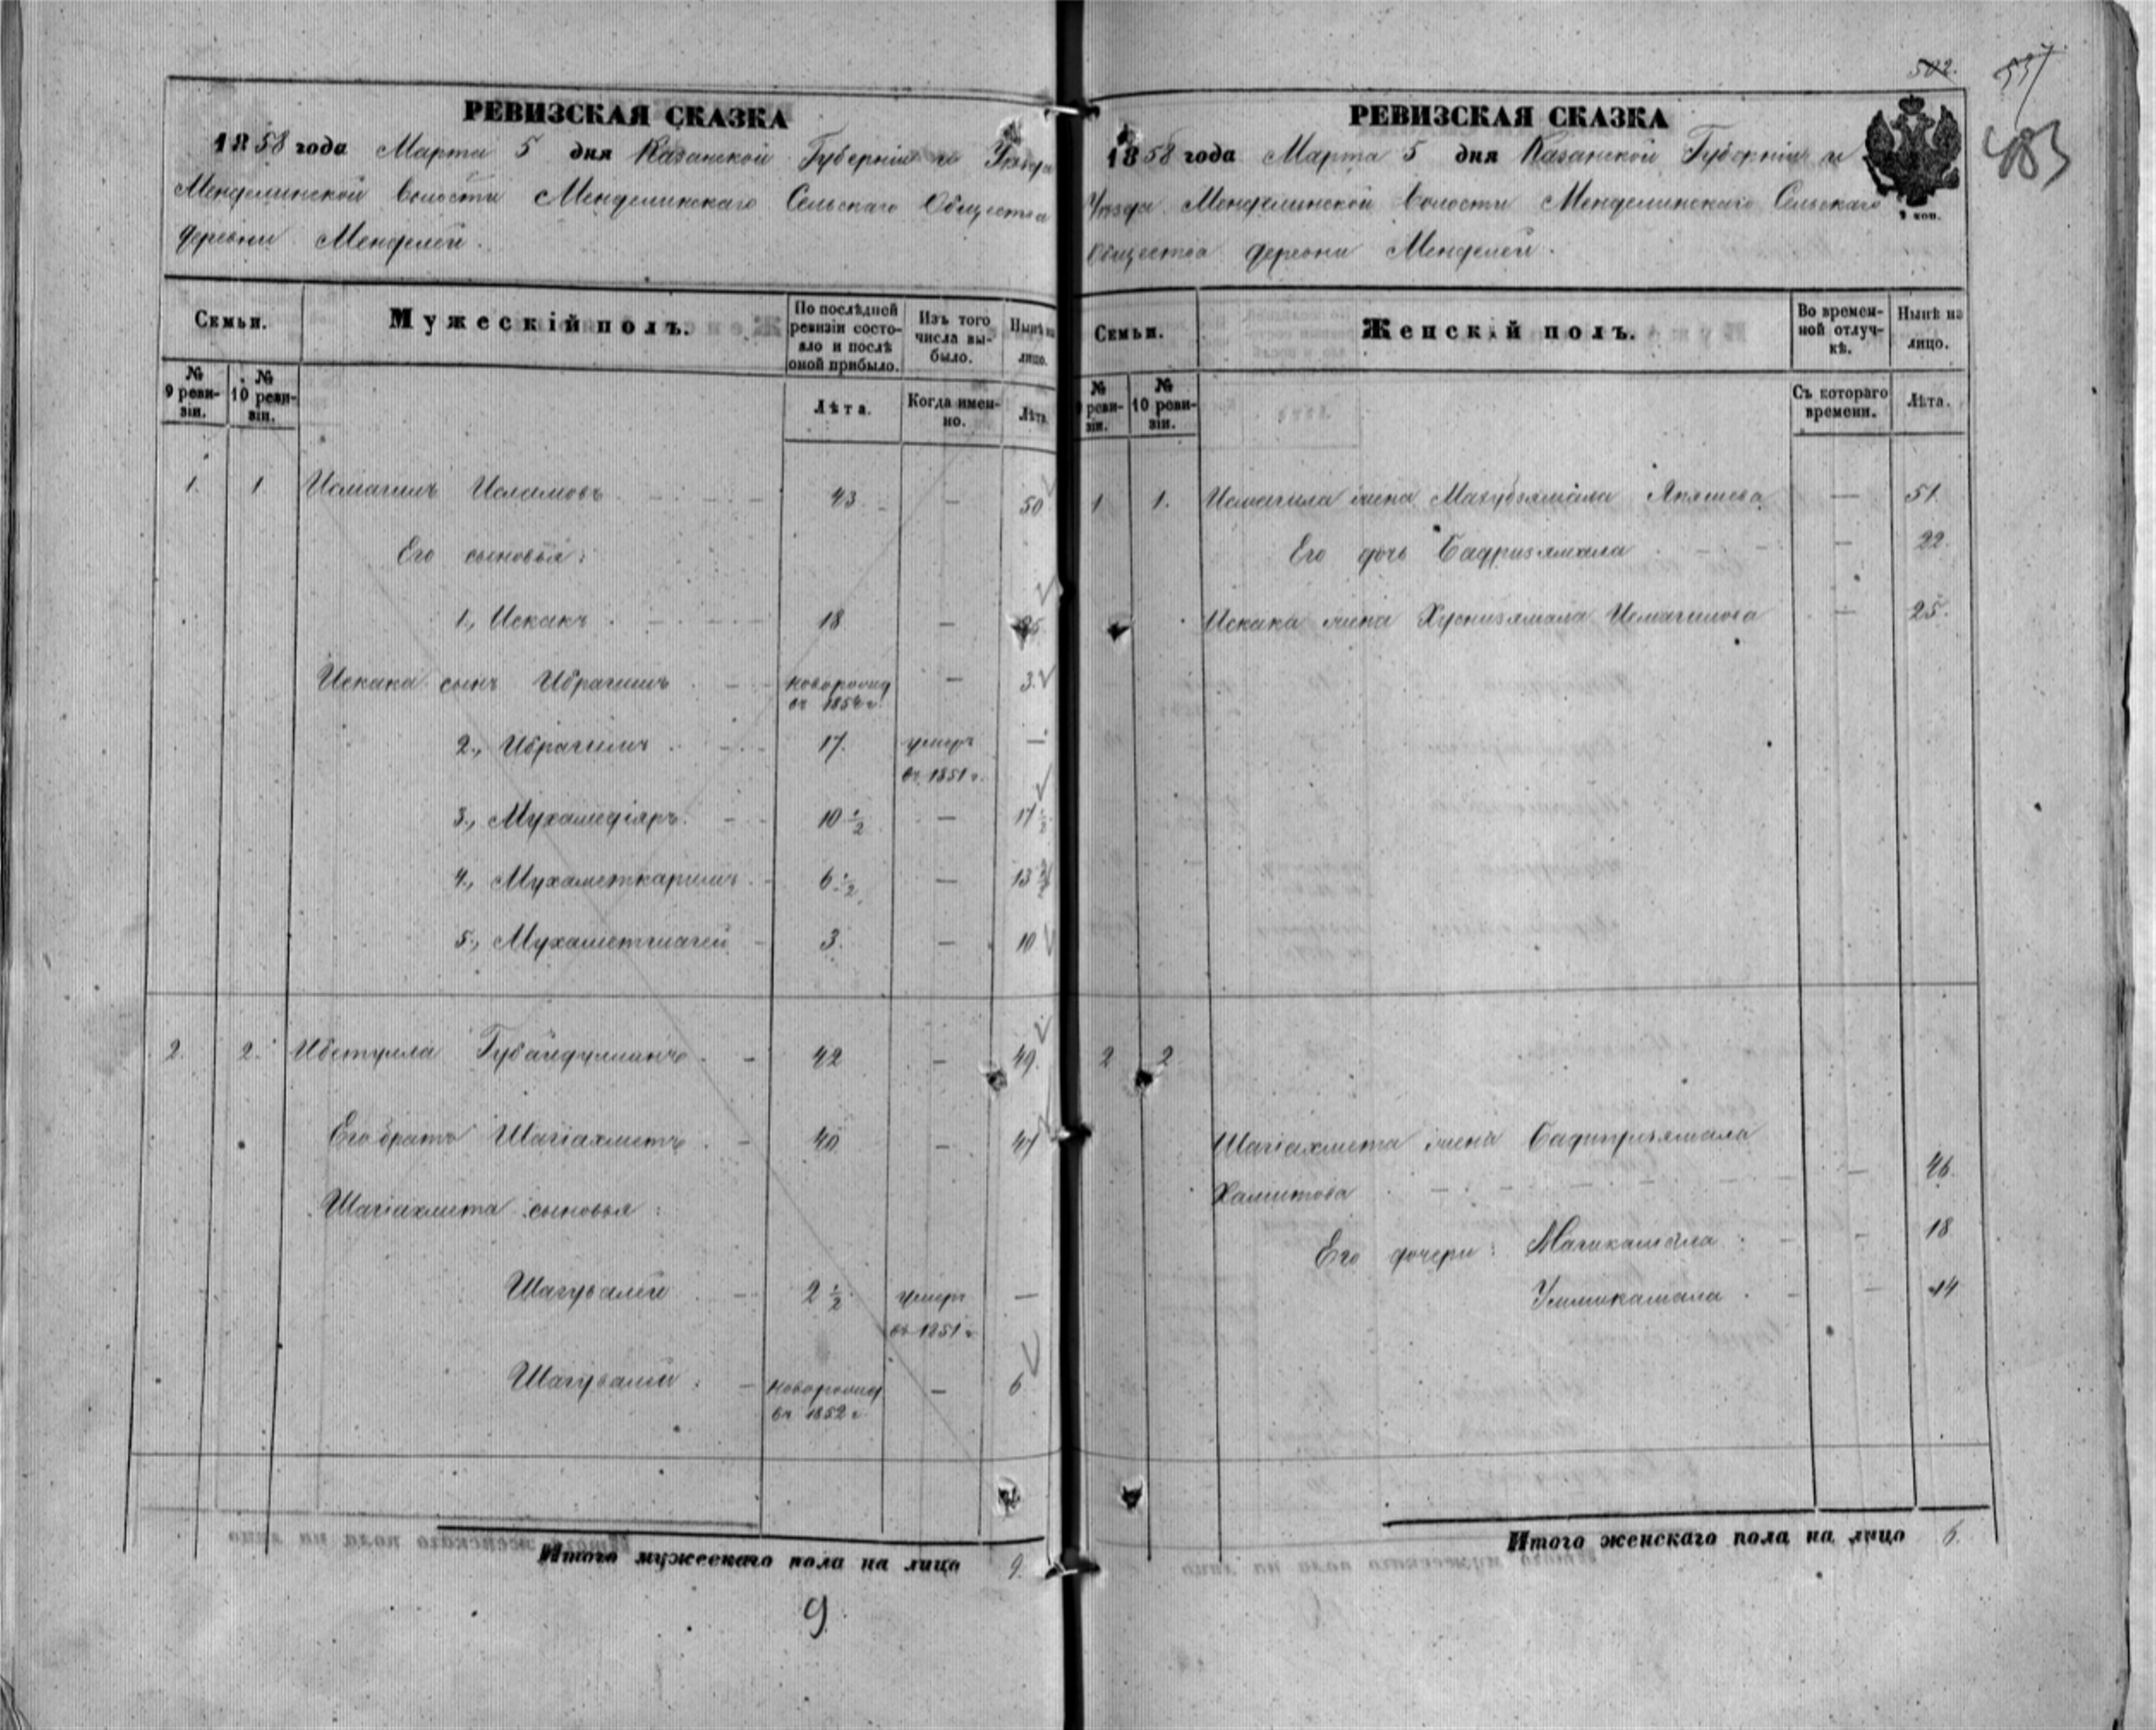 РЕВИЗСКАЯ СКАЗКА
1858 года Марта 5 дня Казанской Губерніи и Уѣзда
Менделинской волости Менделинскаго Сельскаго Общества
деревни Менделей.
Семьи.
Мужескій полъ.
По послѣдней ревизіи состояло и послѣ оной прибыло.
Изъ того числа выбыло.
Нынѣ на лицо.
№ 9 ревизіи.
№ 10 ревизіи.
Лѣта.
Когда именно.
Лѣта
1. 1. Исмагилъ Исламовъ 43 — 50
Его сыновья:
1., Искакъ 18 —
Искака сынъ Ибрагимъ новорожд — 3.
2., Ибрагимъ 17. умеръ —
въ 1851 г.
3., Мухамедіяръ 10 1/2 — 17 1/2
4., Мухаметкаримъ 6 1/2 — 13 1/2
5., 3. — 10
2. 2. Губайдуллинъ 42 — 49.
Его братъ Шагіахметъ 40 — 47
Шагіахмета сыновья:
Шагувалей 2 1/2 умеръ —
въ 1851 г.
Шагувалей новорожд — 6
въ 1852 г.
Итого мужескаго пола на лицо 9.
9.
502.
483
РЕВИЗСКАЯ СКАЗКА
1858 года Марта 5 дня Казанской Губерніи и
Уѣзда Менделинской волости Менделинскаго Сельскаго
Общества деревни Менделей.
Семьи.
Женскій полъ.
Во временной отлучкѣ.
Нынѣ на лицо.
№ ревизіи.
№ 10 ревизіи.
Съ котораго времени.
Лѣта.
1 1. Исмагила жена — 51.
Его дочь Бадризямала — 22.
Искака жена Хуснизямала Исмагилова — 25.
2 2
Шагіахмета жена
Хамитова — 46.
Его дочери: Магикамала — 18
— 14
Итого женскаго пола на лицо 6.